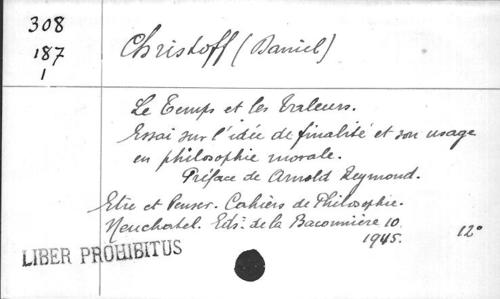 308
187
1
Christoff (Daniel)
Le Temps et les Valeurs.
Essai sur l'idée de finalité et son usage
en philosophie morale.
Préface de Arnold Reymond.
Etre et Penser. Cahiers de Philosophie.
Neuchatel. Eds. de la Baconnière 10
1945. 12°
LIBER PROHIBITUS